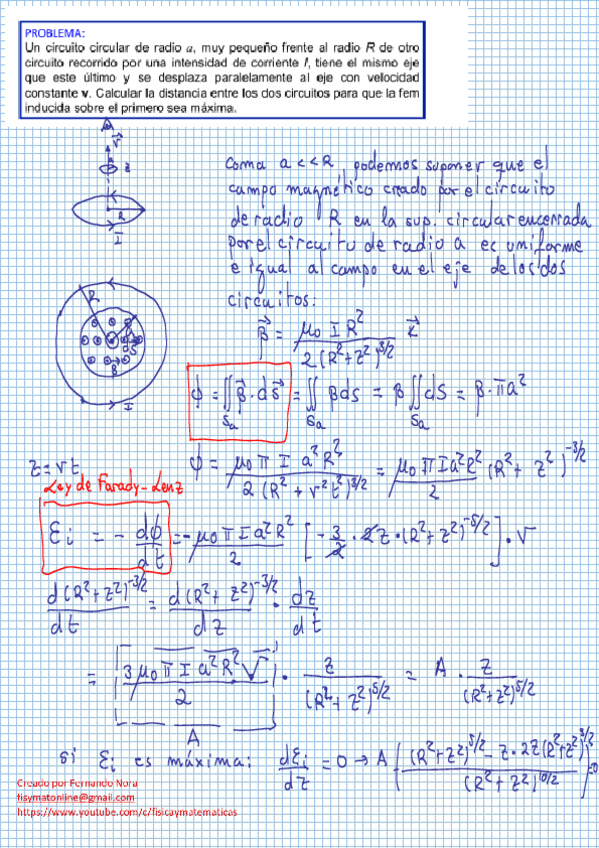 PROBLEMA:
Un circuito circular de radio a, muy pequeño frente al radio R de otro
circuito recorrido por una intensidad de corriente I, tiene el mismo eje
que este último y se desplaza paralelamente al eje con velocidad
constante v. Calcular la distancia entre los dos circuitos para que la fem
inducida sobre el primero sea máxima.
v⃗
z
R
I
Como a << R podemos suponer que el
campo magnético creado por el circuito
de radio R en la sup. circular encerrada
por el circuito de radio a es uniforme
e igual al campo en el eje de los dos
circuitos:
R
I
β⃗ = μ₀ I R² / 2(R²+z²)^3/2 k⃗
ϕ = ∬_Sa β⃗·ds⃗ = ∬_Sa βds = β ∬_Sa dS = β·πa²
z = vt
ϕ = μ₀ π I a² R² / 2(R² + v²t²)^3/2 = μ₀ π I a² R² / 2 (R² + z²)^-3/2
Ley de Farady-Lenz
Ɛi = - dϕ/dt = - μ₀ π I a² R² / 2 [-3/2 · 2z·(R²+z²)^-5/2]·v
d(R²+z²)^-3/2 / dt = d(R²+z²)^-3/2 / dz · dz/dt
= [3μ₀ π I a² R² v / 2] · z / (R²+z²)^5/2 = A · z / (R²+z²)^5/2
A
si Ɛi es máxima: dƐi/dz = 0 → A
Creado por Fernando Nora
fisymatonline@gmail.com
https://www.youtube.com/c/fisicaymatematicas